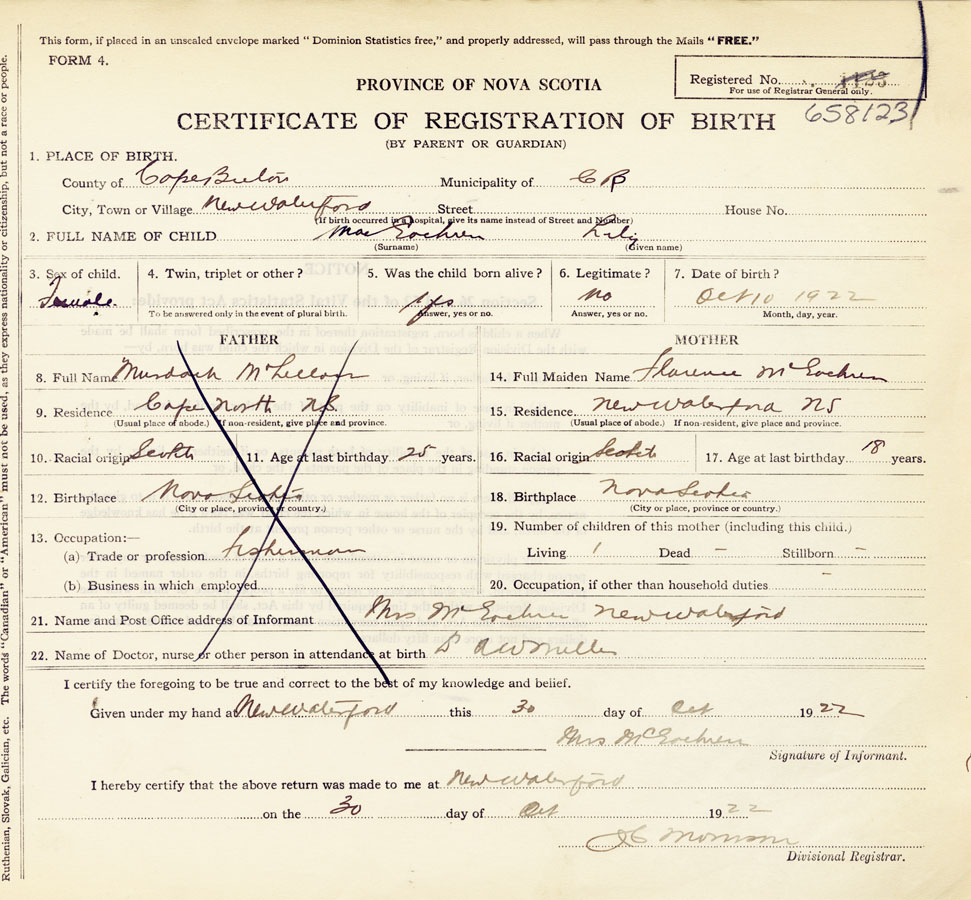 This form, if placed in an unsealed envelope marked "Dominion Statistics free," and properly addressed, will pass through the Mails "FREE."
FORM 4.
PROVINCE OF NOVA SCOTIA
Registered No.
For use of Registrar General only.
658123
CERTIFICATE OF REGISTRATION OF BIRTH
(BY PARENT OR GUARDIAN)
1. PLACE OF BIRTH.
County of Cape Breton Municipality of C B
City, Town or Village New Waterford Street House No.
(If birth occurred in a hospital, give its name instead of Street and Number)
2. FULL NAME OF CHILD Mac Eachren Lily
(Surname) (Given name)
3. Sex of child. 4. Twin, triplet or other? 5. Was the child born alive? 6. Legitimate? 7. Date of birth?
Female. yes no Oct 10 1922
To be answered only in the event of plural birth. Answer, yes or no. Answer, yes or no. Month, day, year.
FATHER MOTHER
8. Full Name Murdock McLellan 14. Full Maiden Name Florence McEachren
9. Residence Cape North NS 15. Residence. New Waterford NS
(Usual place of abode.) If non-resident, give place and province. (Usual place of abode.) If non-resident, give place and province.
10. Racial origin Scotch 11. Age at last birthday 25 years. 16. Racial origin Scotch 17. Age at last birthday 18 years.
12. Birthplace Nova Scotia 18. Birthplace Nova Scotia
(City or place, province or country.) (City or place, province or country.)
13. Occupation:— 19. Number of children of this mother (including this child.)
(a) Trade or profession Fisherman Living 1 Dead – Stillborn –
(b) Business in which employed 20. Occupation, if other than household duties –
21. Name and Post Office address of Informant Mrs McEachren New Waterford
22. Name of Doctor, nurse or other person in attendance at birth Dr A W Miller
I certify the foregoing to be true and correct to the best of my knowledge and belief.
Given under my hand at New Waterford this 30 day of Oct 1922
Mrs McEachren
Signature of Informant.
I hereby certify that the above return was made to me at New Waterford
on the 30 day of Oct 1922
J C Morrison
Divisional Registrar.
The words "Canadian" or "American" must not be used, as they express nationality or citizenship, but not a race or people.
Ruthenian, Slovak, Galician, etc.